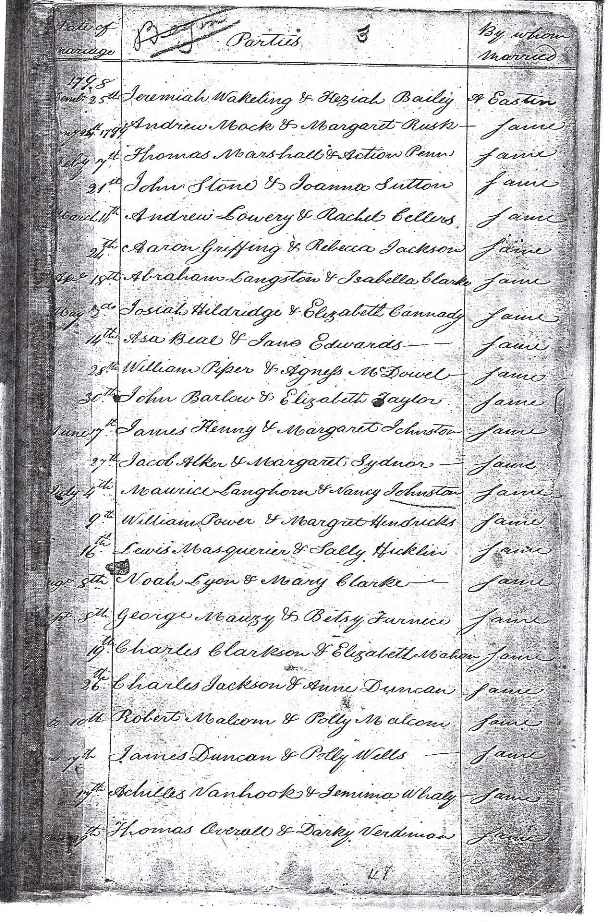 Date of marriage Begin Parties 3 By whom Married
1798
25th Jeremiah Wakeling & Keziah Bailey A Eastin
24th 1799 Andrew Mock & Margaret Rusk — Same
7th Thomas Marshall & Action Penn Same
21st John Stone & Joanna Sutton Same
March 11th Andrew Lowery & Rachel Cellers Same
24th Aaron Griffing & Rebecca Jackson Same
18th Abraham Langston & Isabella Clarke Same
May 3d Josiah Hildredge & Elizabeth Cannady Same
14th Asa Beal & Jane Edwards — — Same
28th William Piper & Agness McDowel — Same
30th John Barlow & Elizabeth Taylor Same
June 17th James Kenny & Margaret Johnston Same
27th Jacob Alker & Margaret Sydnor — Same
July 4th Maurice Langhorn & Nancy Johnston Same
9th William Power & Margret Hendricks Same
16th Lewis Masquerier & Sally Hicklin Same
8th Noah Lyon & Mary Clarke — Same
8th George Mauzy & Betsy Furnice Same
19th Charles Clarkson & Elizabeth Mahan Same
26th Charles Jackson & Anne Duncan Same
10th Robert Malcom & Polly Malcom Same
7th James Duncan & Polly Wells — Same
17th Achilles Vanhook & Jemima Whaly Same
Thomas Overall & Darky Verdiman Same